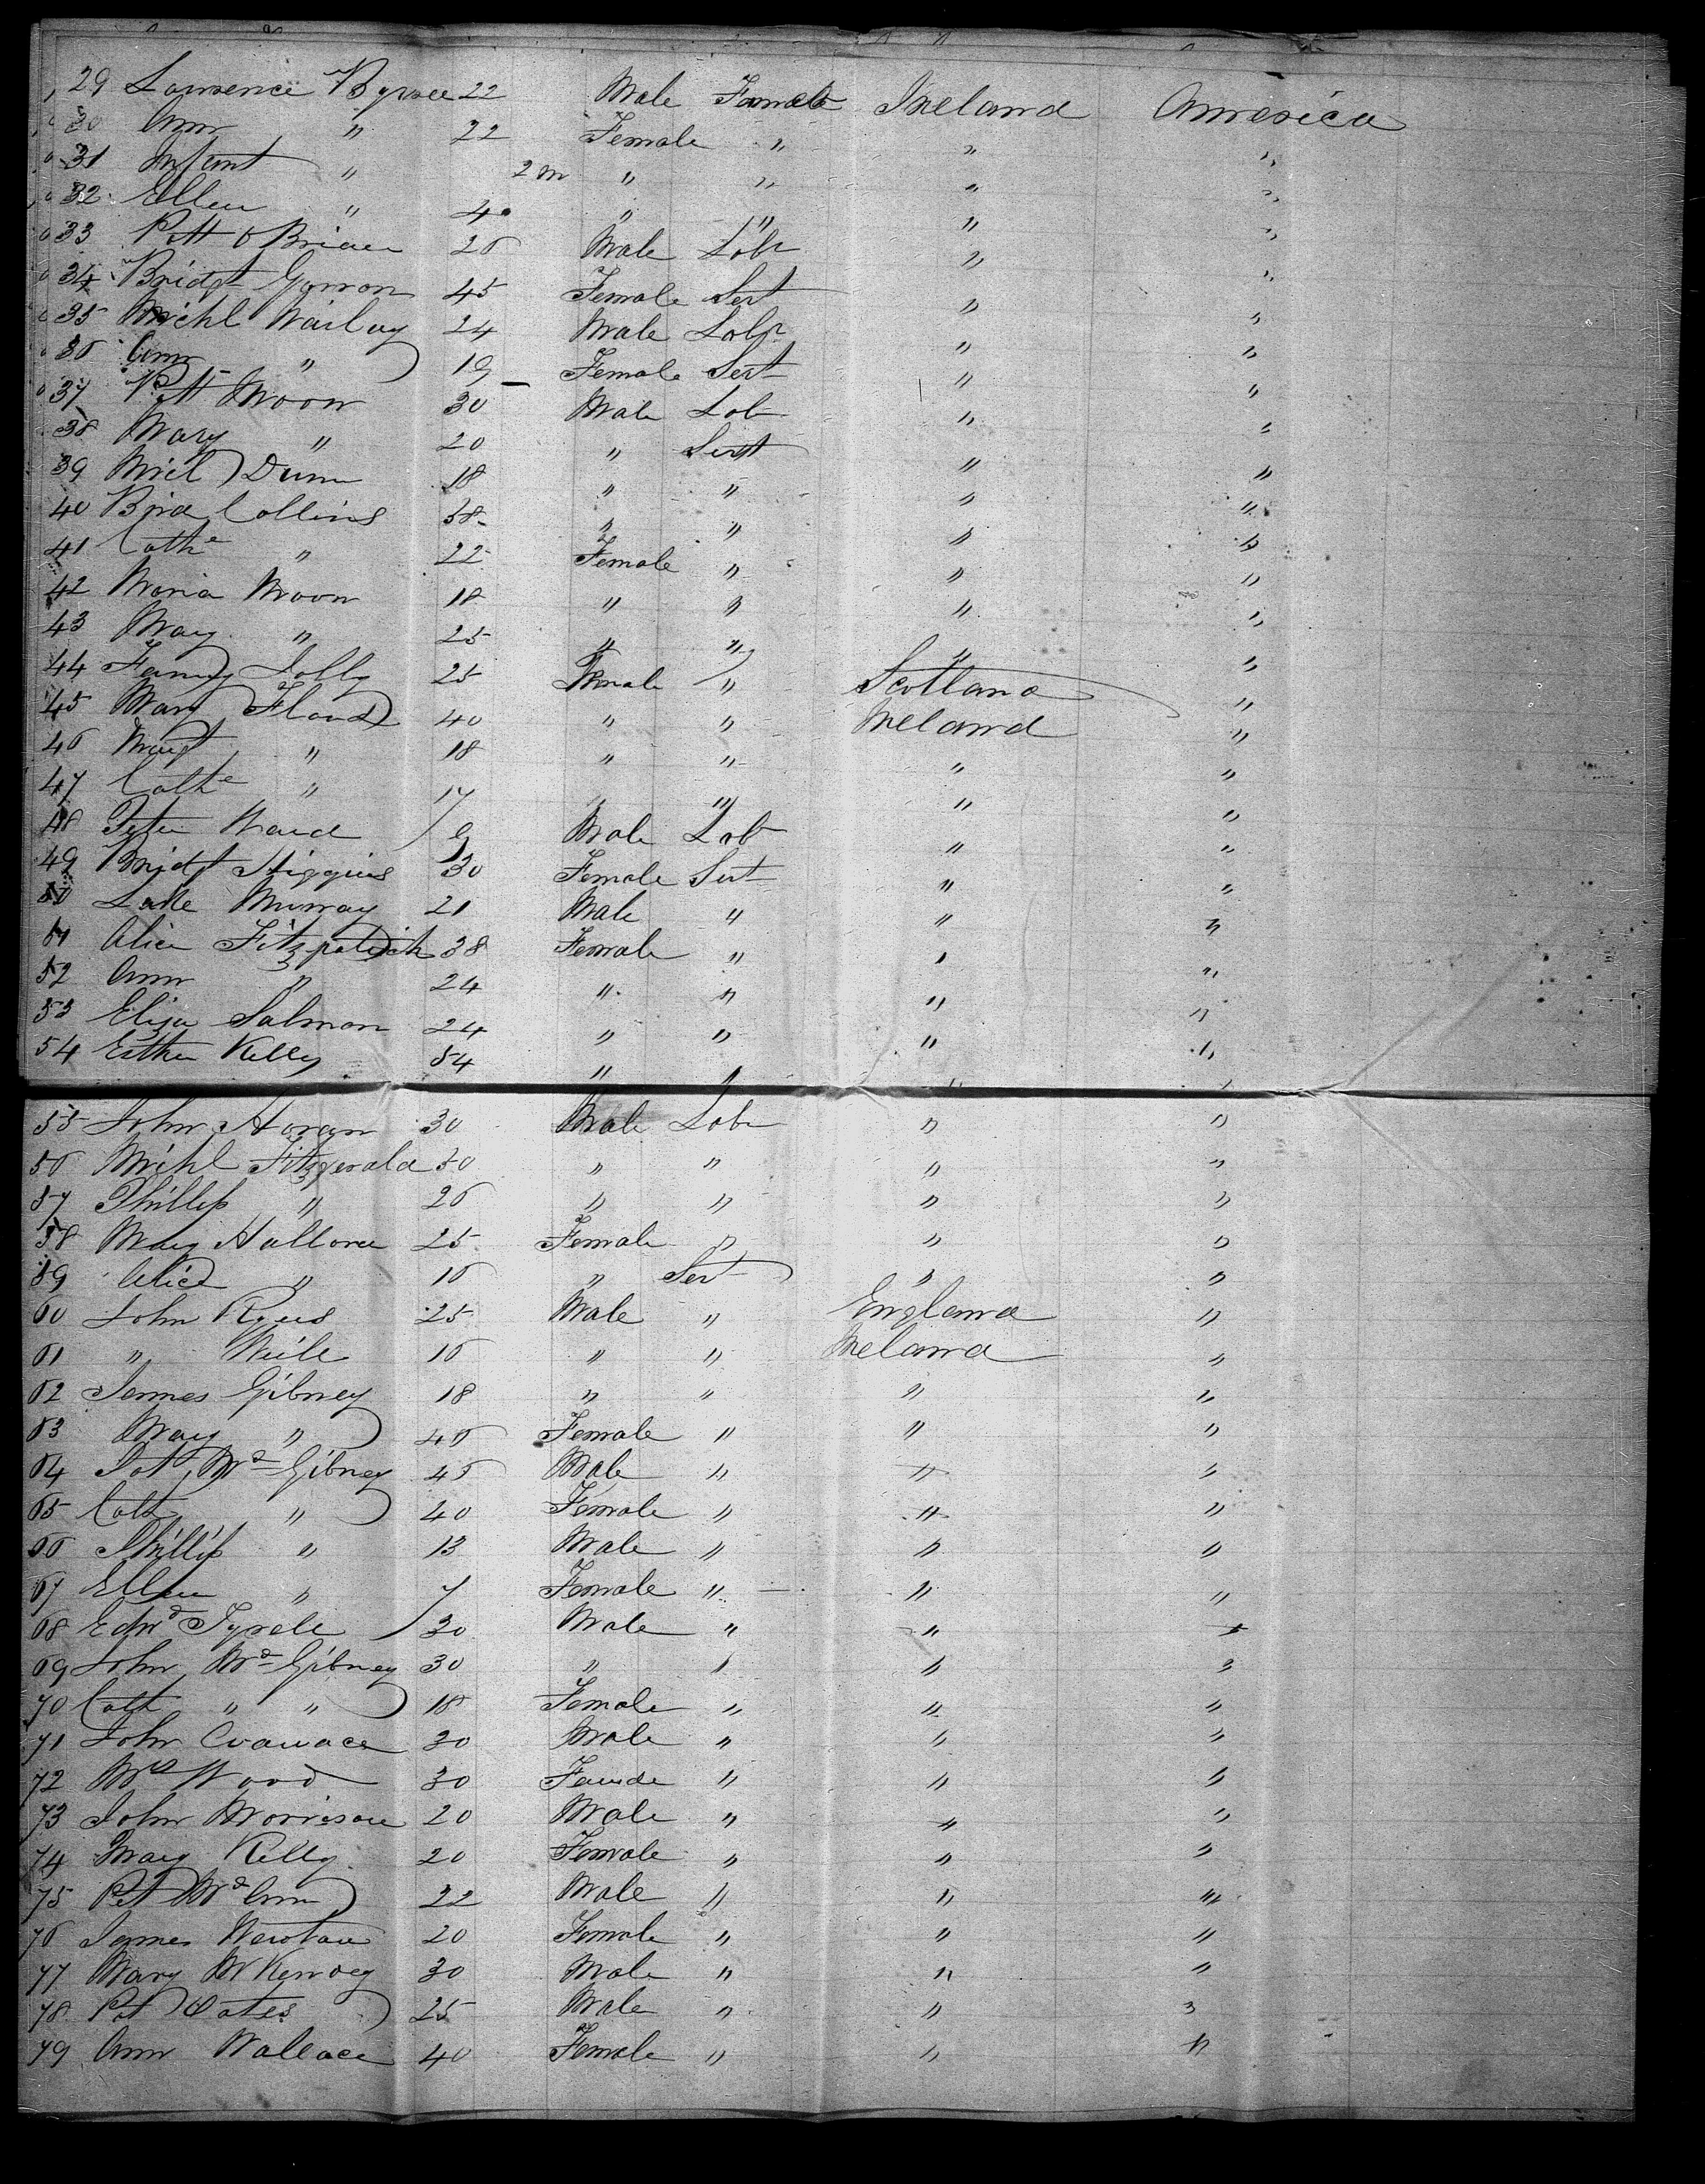 29 Lawrence Byrne 22 Male Female Ireland America
30 Ann " 22 Female " " "
31 Infant " 2m " " " "
32 Ellen " 40 " " " "
33 Patt O Brien 26 Male Labr " "
34 Bridgt 45 Female Sert " "
35 Michl 24 Male Labr " "
36 Ann " 19 Female Sert " "
37 Patt Moon 30 Male Lab " "
38 Mary " 20 " Sert " "
39 Micl Dunn 18 " " " "
40 Collins 38 " " " "
41 Cathe " 22 Female " " "
42 Maria Moon 18 " " " "
43 Mary " 25 " " " "
44 25 Female " Scotland "
45 Mary Flood 40 " " Ireland "
46 Margt " 18 " " " "
47 Cathe " 17 " " " "
48 Peter Ward 19 Male Lab " "
49 Bridgt Higgins 30 Female Sert " "
50 Luke Murray 21 Male " " "
51 Alice Fitzpatrick 38 Female " " "
52 Ann " 24 " " " "
53 Eliza Salmon 24 " " " "
54 Esther Kelly 54 " " " "
55 John Horan 30 Male Labr " "
56 Michl Fitzgerald 30 " " " "
57 Phillip " 26 " " " "
58 Mary Halloran 25 Female " " "
59 Alice " 16 " Sert " "
60 John 25 Male " England "
61 " 16 " " Ireland "
62 James Gibney 18 " " " "
63 Mary " 46 Female " " "
64 Pat Mc Gibney 45 Male " " "
65 Cath " 40 Female " " "
66 Phillip " 13 Male " " "
67 Ellen " 7 Female " " "
68 Edwd Tyrele 30 Male " " "
69 John Mc Gibney 30 " " " "
70 Cath " " 18 Female " " "
71 John 30 Male " " "
72 Mrs Wood 30 " " "
73 John Morrison 20 Male " " "
74 Mary Kelly 20 Female " " "
75 Pat Mc Ann 22 Male " " "
76 James Newtan 20 Female " " "
77 Mary 30 Male " " "
78 Pat Oates 25 Male " " "
79 Ann Wallace 40 Female " " "